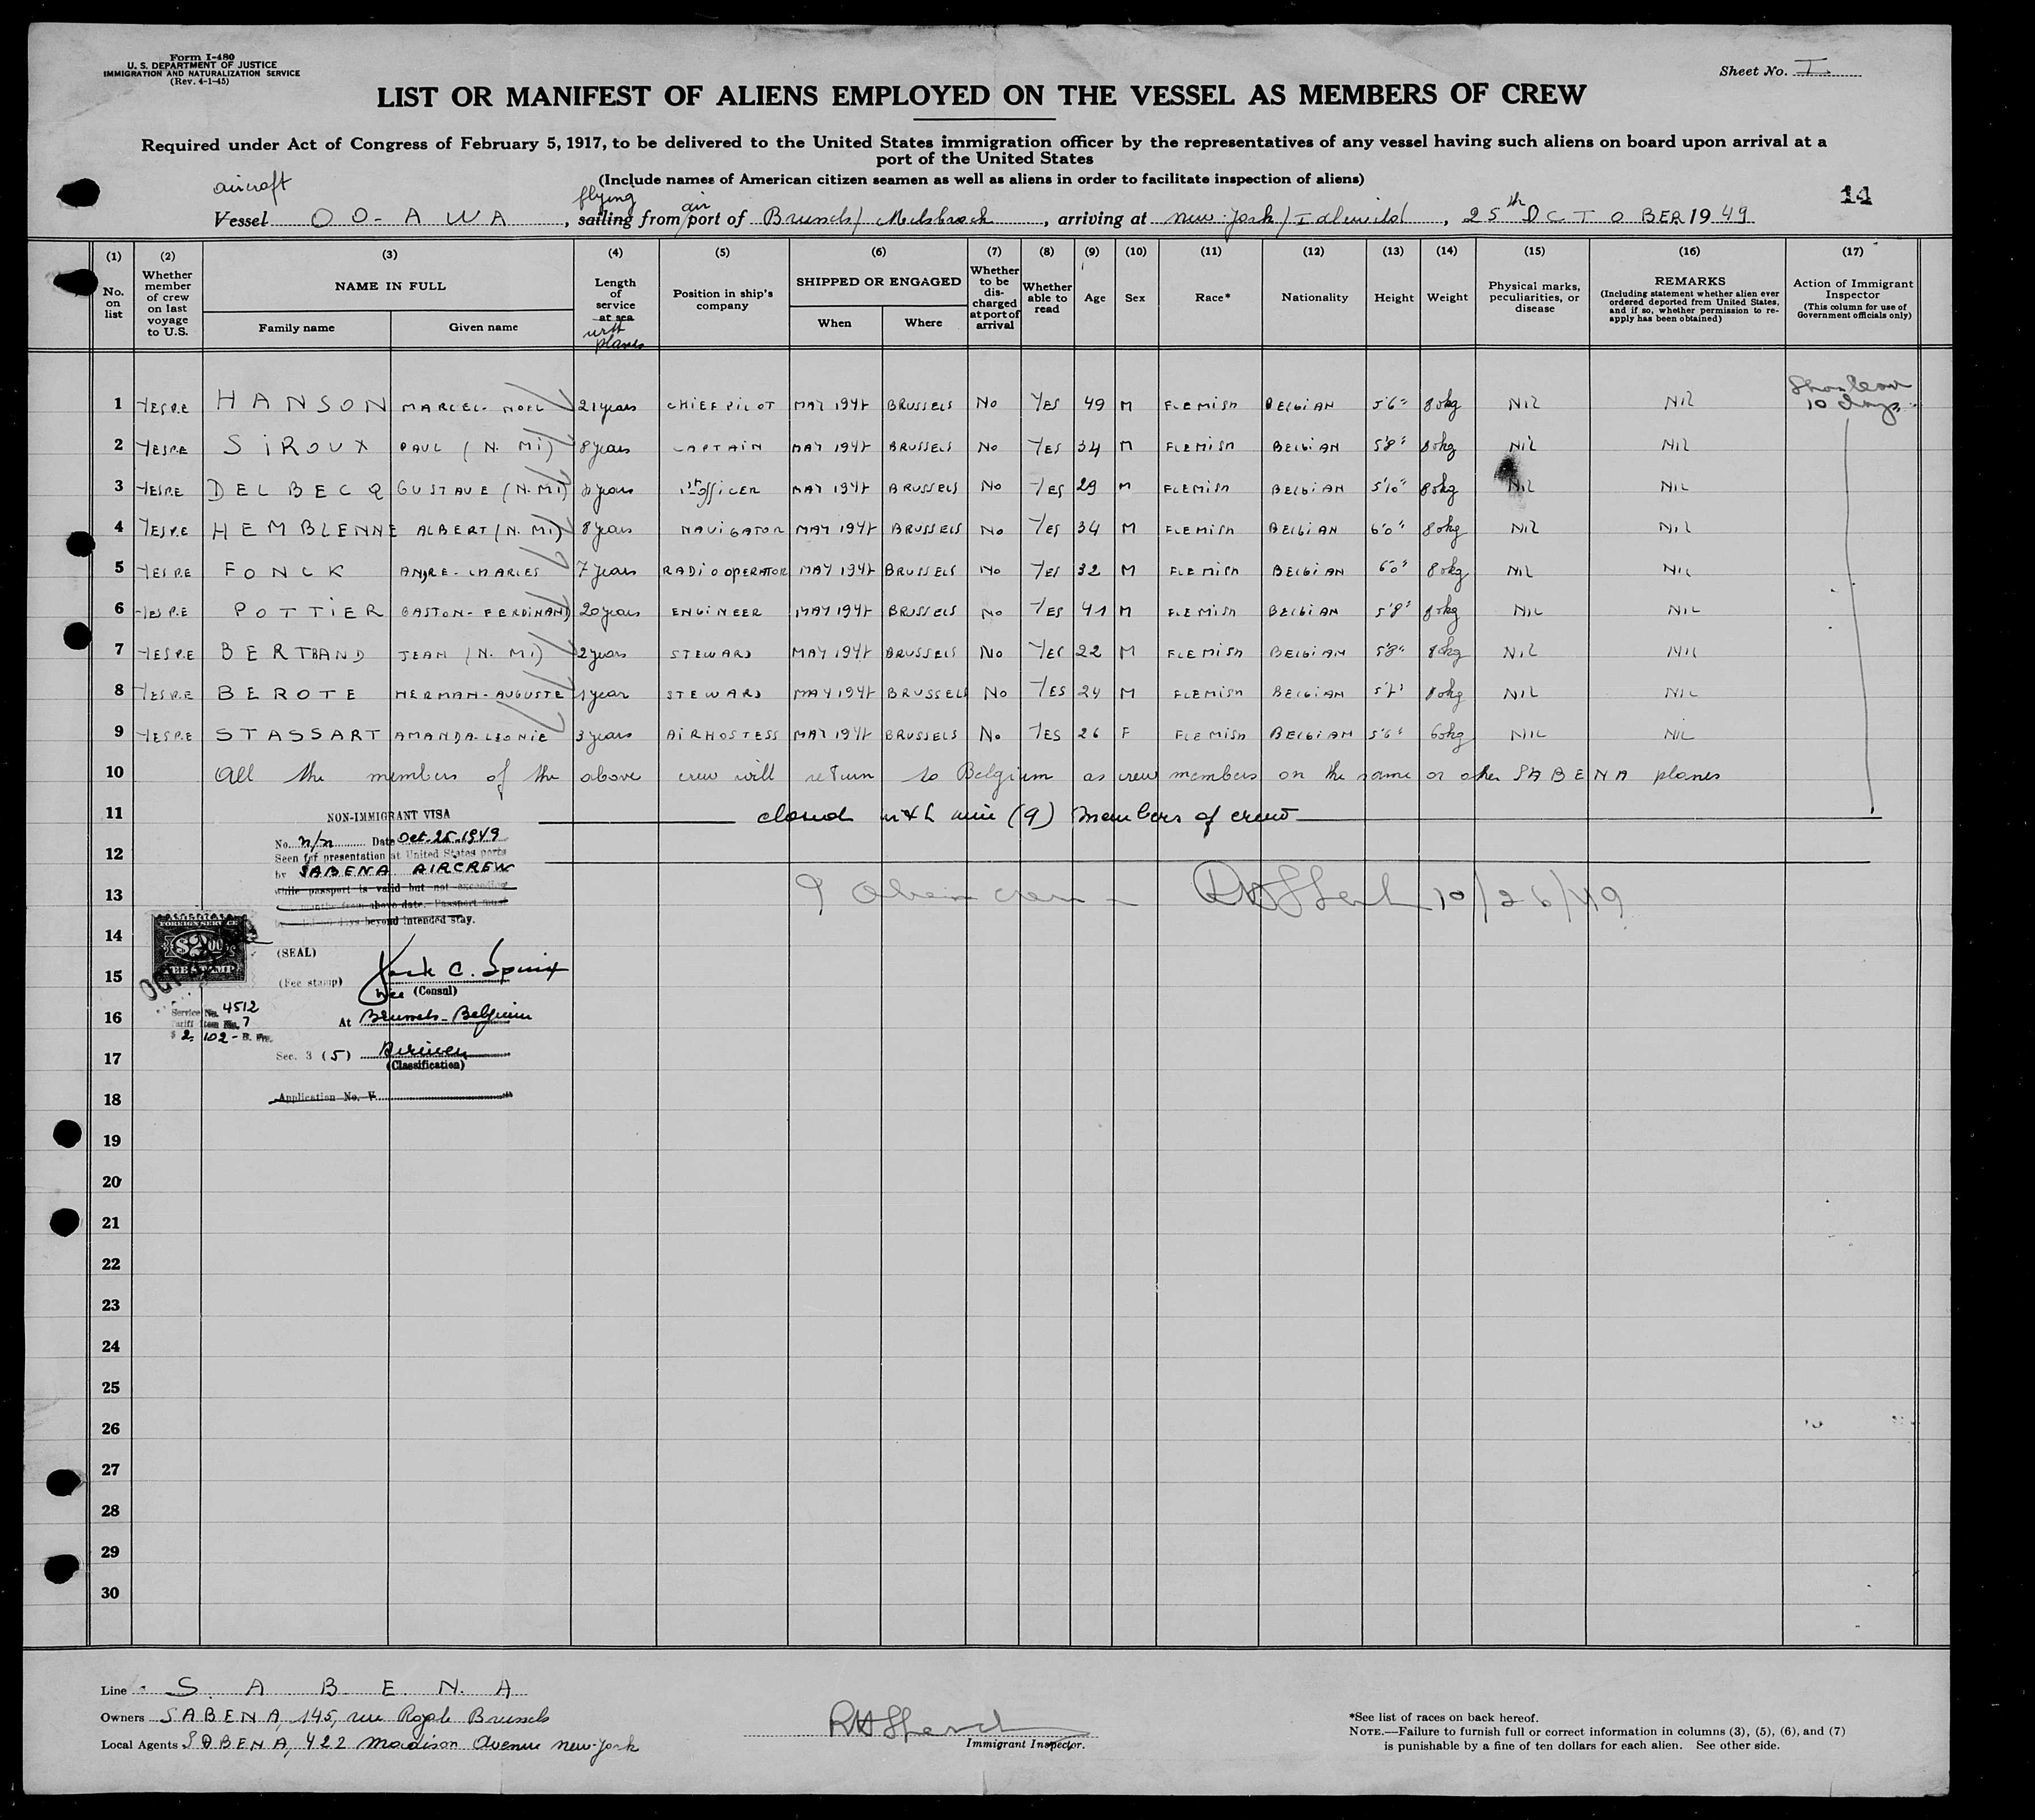 Form I-480
U. S. DEPARTMENT OF JUSTICE
IMMIGRATION AND NATURALIZATION SERVICE
(Rev. 4-1-45)
Sheet No. I
LIST OR MANIFEST OF ALIENS EMPLOYED ON THE VESSEL AS MEMBERS OF CREW
Required under Act of Congress of February 5, 1917, to be delivered to the United States immigration officer by the representatives of any vessel having such aliens on board upon arrival at a
port of the United States
(Include names of American citizen seamen as well as aliens in order to facilitate inspection of aliens)
14
aircraft flying air
Vessel OO-AWA, sailing from port of Brussels/ Melsbroek, arriving at New-York/Idlewild, 25th OCTOBER 1949
(1) (2) (3) (4) (5) (6) (7) (8) (9) (10) (11) (12) (13) (14) (15) (16) (17)
No. on list
Whether member of crew on last voyage to U.S.
NAME IN FULL
Family name
Given name
Length of service at sea with planes
Position in ship's company
SHIPPED OR ENGAGED
When
Where
Whether to be discharged at port of arrival
Whether able to read
Age
Sex
Race*
Nationality
Height
Weight
Physical marks, peculiarities, or disease
REMARKS
(Including statement whether alien ever ordered deported from United States, and if so, whether permission to reapply has been obtained)
Action of Immigrant Inspector
(This column for use of Government officials only)
1 YES P.E HANSON MARCEL-NOEL 21 years CHIEF PILOT MAY 1947 BRUSSELS No YES 49 M FLEMISH BELGIAN 5'6" 80kg NIL NIL Shore leave 10 days
2 YES P.E SIROUX PAUL (N. MI) 8 years CAPTAIN MAY 1947 BRUSSELS No YES 34 M FLEMISH BELGIAN 5'8" 80kg NIL NIL
3 YES P.E DELBECQ GUSTAVE (N. MI) years 1st OFFICER MAY 1947 BRUSSELS No YES 29 M FLEMISH BELGIAN 5'10" 80kg NIL NIL
4 YES P.E HEMBLENNE ALBERT (N. MI) 8 years NAVIGATOR MAY 1947 BRUSSELS No YES 34 M FLEMISH BELGIAN 6'0" 80kg NIL NIL
5 YES P.E FONCK ANDRE-CHARLES 7 years RADIO OPERATOR MAY 1947 BRUSSELS No YES 32 M FLEMISH BELGIAN 6'0" 80kg NIL NIL
6 YES P.E POTTIER GASTON-FERDINAND 20 years ENGINEER MAY 1947 BRUSSELS No YES 41 M FLEMISH BELGIAN 5'8" 80kg NIL NIL
7 YES P.E BERTRAND JEAN (N. MI) 2 years STEWARD MAY 1947 BRUSSELS No YES 22 M FLEMISH BELGIAN 5'8" 80kg NIL NIL
8 YES P.E BEROTE HERMAN-AUGUSTE 1 year STEWARD MAY 1947 BRUSSELS No YES 24 M FLEMISH BELGIAN 5'7" 80kg NIL NIL
9 YES P.E STASSART AMANDA-LEONIE 3 years AIRHOSTESS MAY 1947 BRUSSELS No YES 26 F FLEMISH BELGIAN 5'6" 60kg NIL NIL
10 All the members of the above crew will return to Belgium as crew members on the same or other SABENA planes
11 closed with nine (9) members of crew
12
13 9 Alien crew - 10/26/49
14
15
16
17
18
19
20
21
22
23
24
25
26
27
28
29
30
NON-IMMIGRANT VISA
No. n/n Date Oct. 25. 1949
Seen for presentation at United States ports
by SABENA AIRCREW
while passport is valid but not exceeding
months from above date. Passport must
days beyond intended stay.
(SEAL)
(Fee stamp)
Vice (Consul)
At Brussels-Belgium
Sec. 3 (5)
(Classification)
Application No. V
FOREIGN SERVICE
$2.00
FEE STAMP
OCT
Service No. 4512
Tariff Item No. 7
$ 2, 102- B. Frs.
Line S. A B E N. A
Owners SABENA, 145, rue Royale Brussels
Local Agents SABENA, 422 Madison Avenue New-York
Immigrant Inspector.
*See list of races on back hereof.
NOTE.—Failure to furnish full or correct information in columns (3), (5), (6), and (7)
is punishable by a fine of ten dollars for each alien. See other side.